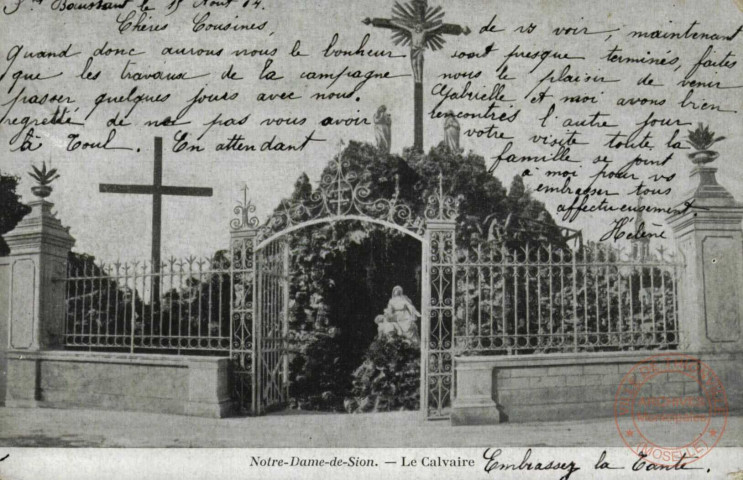 Boussant le 15 Août 04.
Chères Cousines,
Quand donc aurons nous le bonheur
que les travaux de la campagne
passer quelques jours avec nous.
regretté de ne pas vous avoir
à Toul. En attendant
de vs voir, maintenant
sont presque terminés, faites
nous le plaisir de venir
Gabrielle et moi avons bien
rencontrés l'autre jour
votre visite toute la
famille se joint
à moi pour vs
embrasser tous
affectueusement
Hélène
Notre-Dame-de-Sion. — Le Calvaire
Embrassez la Tante.
(MOSELLE)